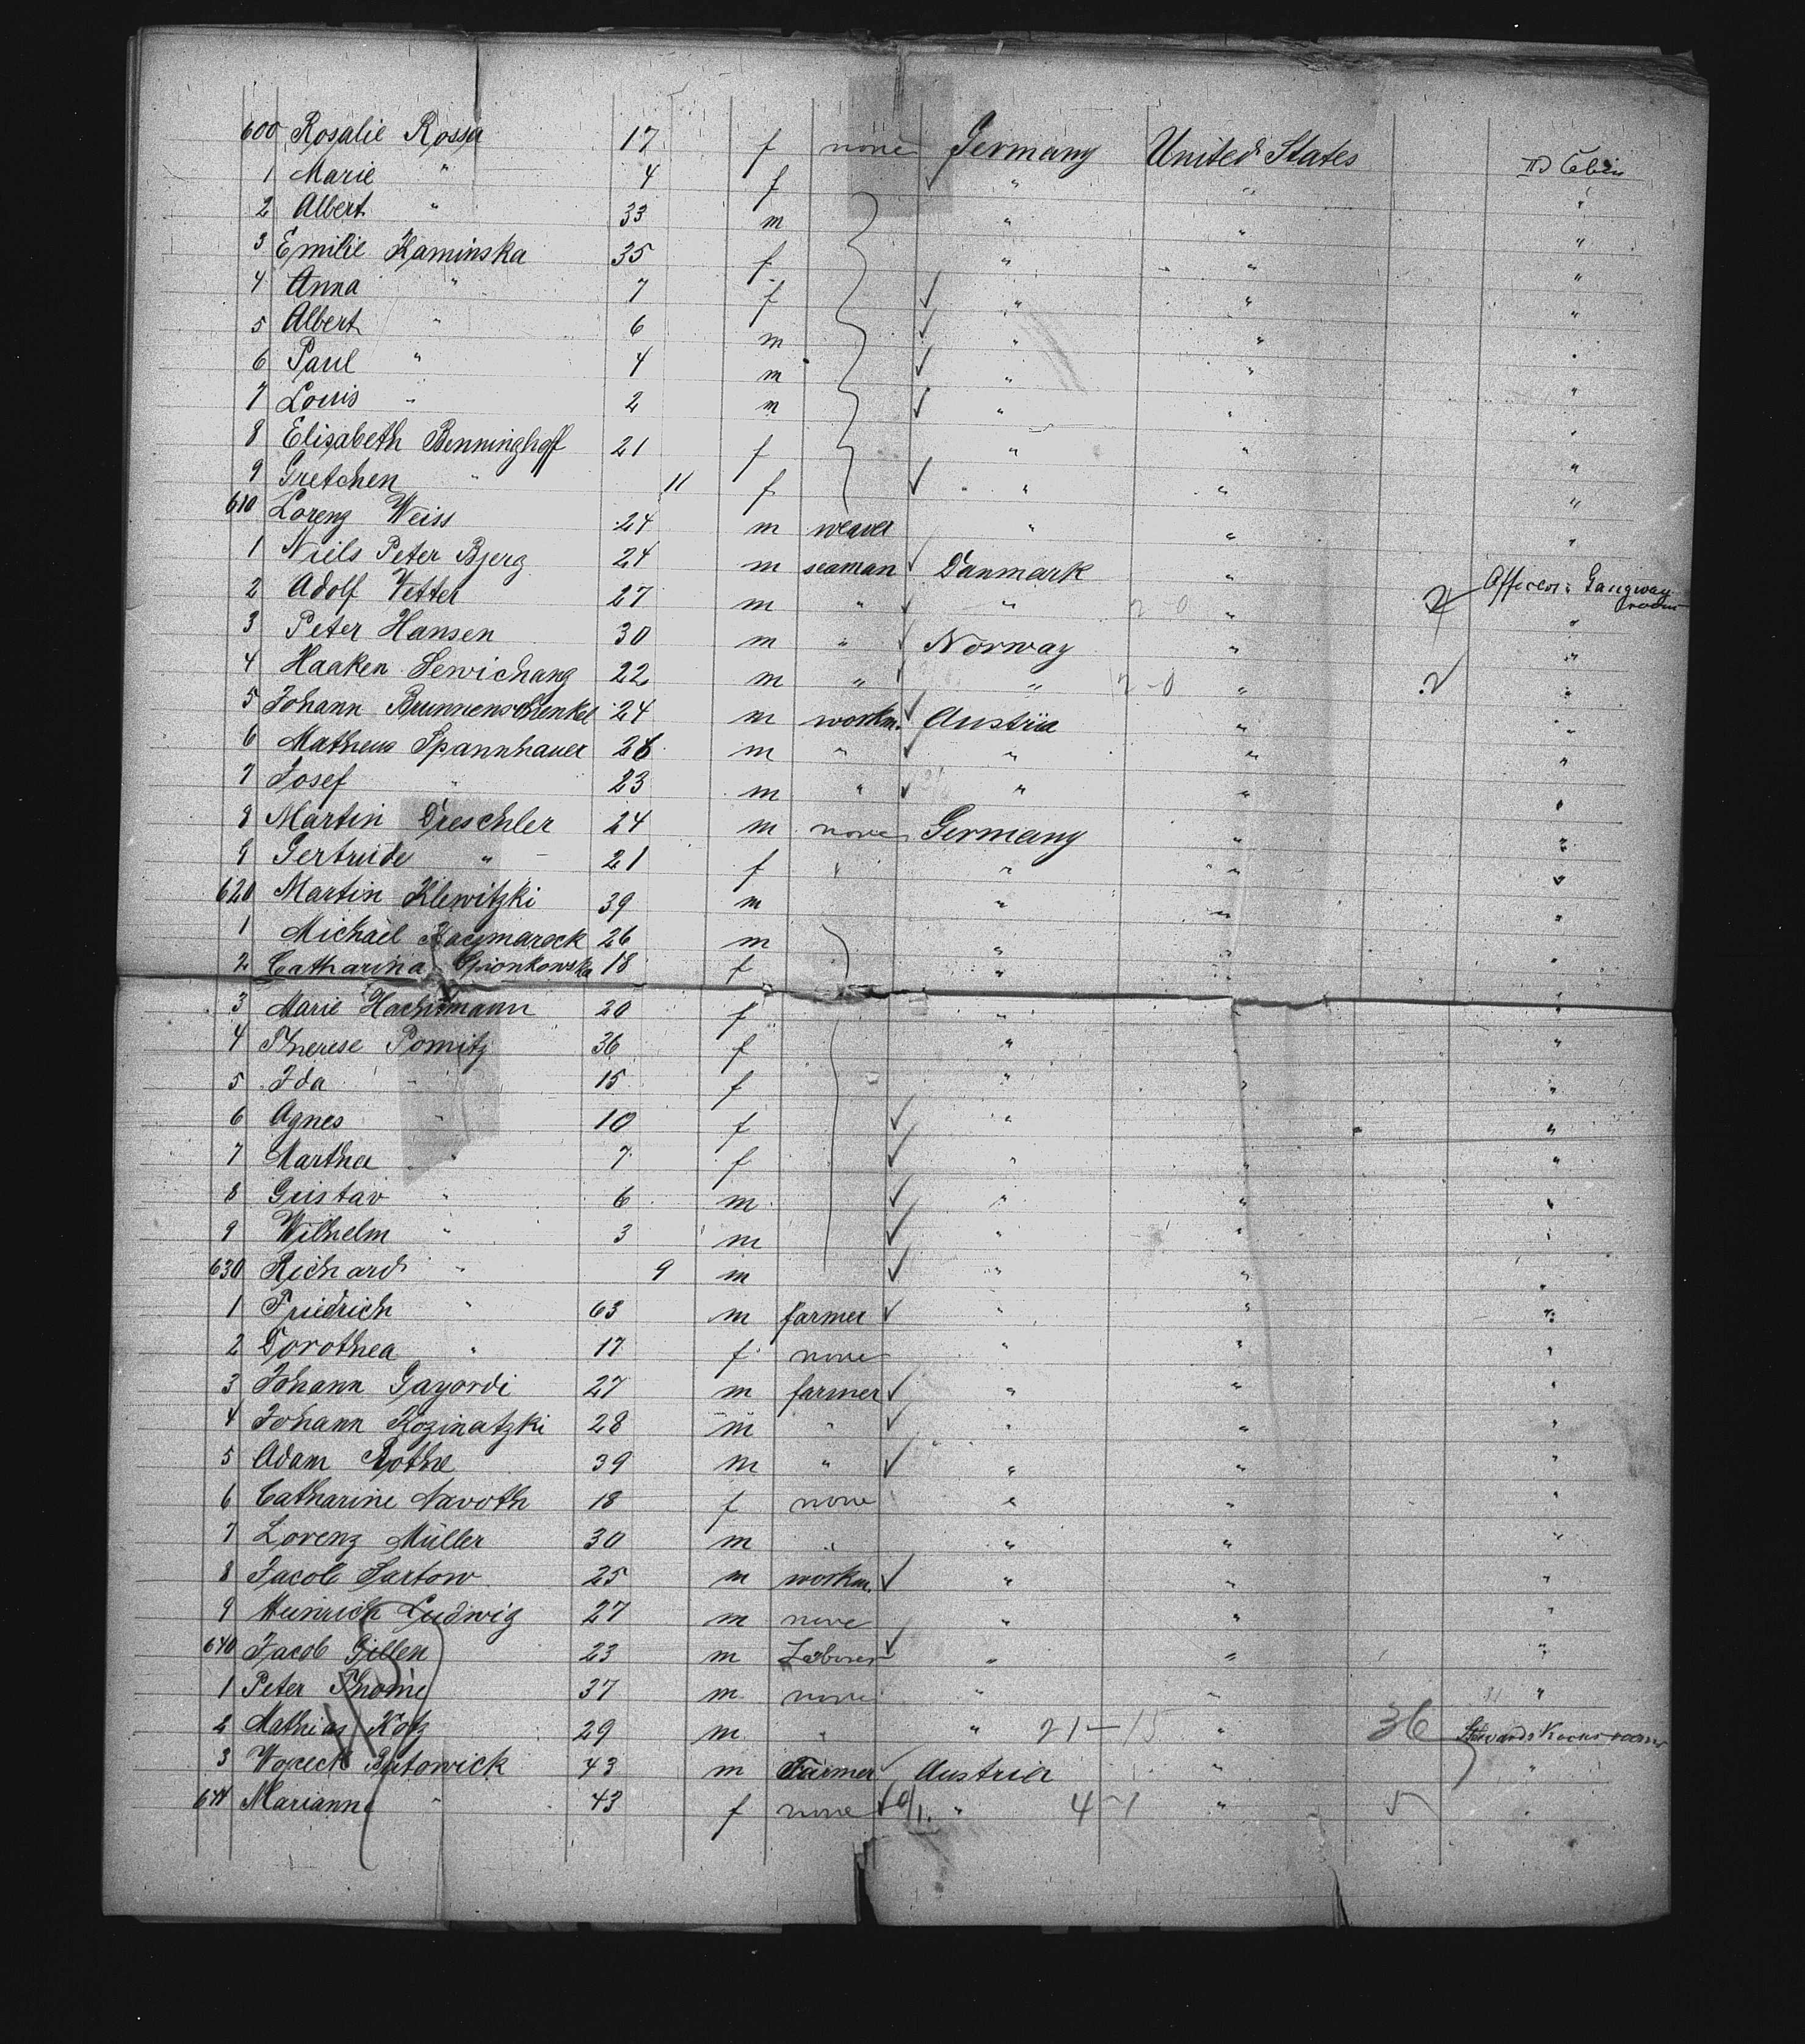 600 Rosalie Rossa 17 f none Germany United States IId Cabin
1 Marie " 4 f ✓ " " "
2 Albert " 33 m " " "
3 Emilie Kaminska 35 f " " "
4 Anna " 7 f ✓ " " "
5 Albert " 6 m ✓ " " "
6 Paul " 4 m ✓ " " "
7 Louis " 2 m ✓ " " "
8 Elisabeth Benninghoff 21 f " " "
9 Gretchen " 11 f ✓ " " "
610 Lorenz Weiss 24 m weaver " " "
1 Niels Peter Bjerg 24 m seaman ✓ Danmark " Officers Gangway room
2 Adolf Vetter 27 m " ✓ " 2-0 " 2 "
3 Peter Hansen 30 m " ✓ Norway " "
4 Haaken Sewichang 22 m " ✓ " 2-0 " 2 "
5 Johann Brunnenschenkel 24 m workm. ✓ Austria " "
6 Matheus Spannhauer 26 m " ✓ " " "
7 Josef " 23 m " ✓ " " "
8 Martin Dreschler 24 m none Germany " "
9 Gertrude " 21 f " " " "
620 Martin Klewitzki 39 m " " "
1 Michael Kaczmareck 26 m " " "
2 Catharina Opionkowska 18 f " " "
3 Marie Hachtmann 20 f " " "
4 Therese Pomitz 36 f " " "
5 Ida " 15 f " " "
6 Agnes " 10 f ✓ " " "
7 Martha " 7 f ✓ " " "
8 Gustav " 6 m ✓ " " "
9 Wilhelm " 3 m ✓ " " "
630 Richard " 9 m ✓ " " "
1 Friedrich " 63 m farmer ✓ " " "
2 Dorothea " 17 f none " " "
3 Johann Gayordi 27 m farmer ✓ " " "
4 Johann Kozinatzki 28 m " ✓ " " "
5 Adam Rothe 39 m " ✓ " " "
6 Catharine Navoth 18 f none " " "
7 Lorenz Müller 30 m " " " "
8 Jacob Sartow 25 m workm. ✓ " " "
9 Heinrich Ludwig 27 m none " " "
640 Jacob Gillen 23 m Laborer ✓ " " "
1 Peter Thomé 37 m none " " "
2 Mathias Kotz 29 m " " 21-15 " 36 Stewards Room
3 Woyeck Butowick 43 m Farmer ✓ Austria " "
644 Marianne " 43 f none ✓ " 4-1 " 5 "